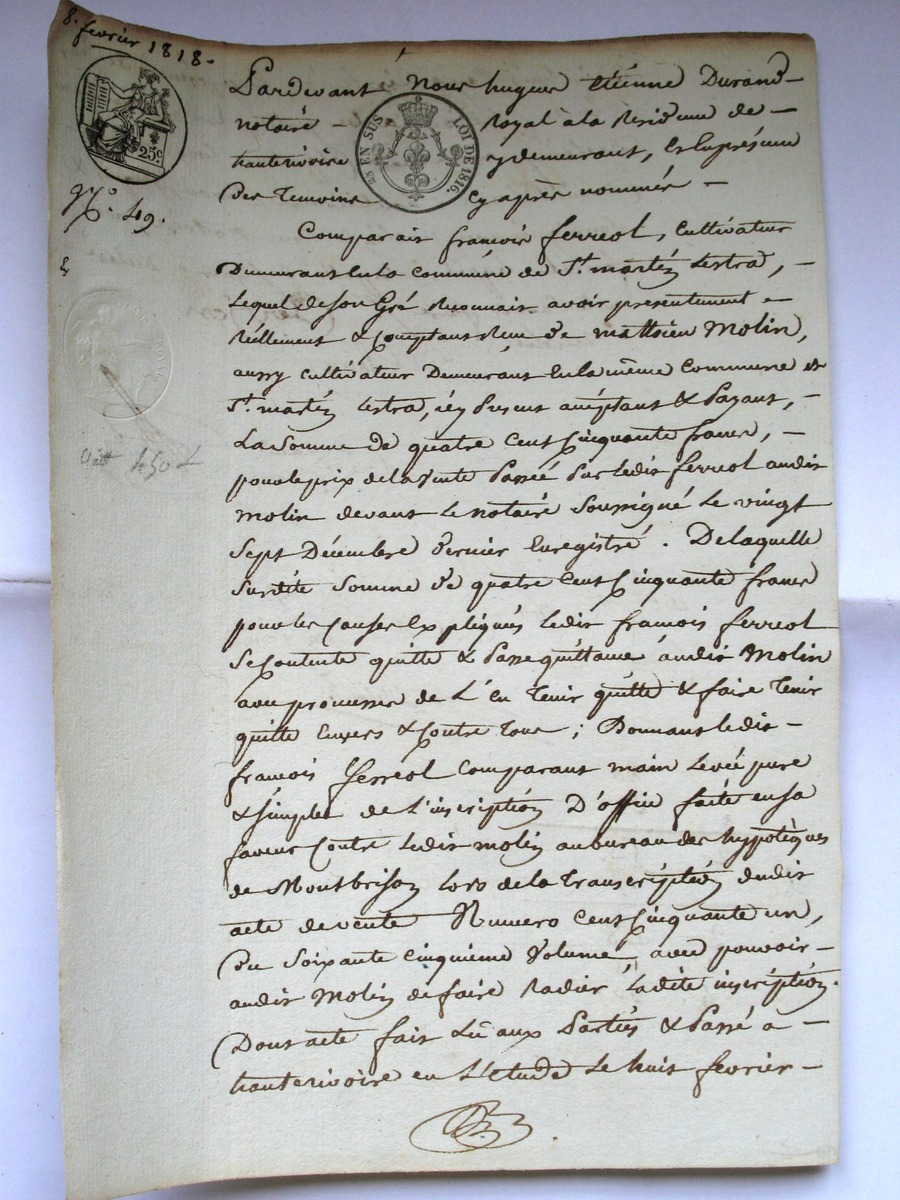 8. fevrier 1818.
25 c
25 EN SUS LOI DE 1816.
N.o 49.
450
Pardevant Nous hugue Etienne Durand
notaire Royal à la Residence de
hauterivoire y demeurant, Et En presence
Des Temoins Cy après nommés
Comparait françois ferreol, Cultivateur
Demeurant En la commune de St. martin Lestra,
Lequel de son Gré Reconnait avoir presentement
Réellement & Comptant Reçu de matthieu Molin,
aussy cultivateur Demeurant En la même Commune de
St. martin Lestra, icy present acceptant & Payant,
La Somme de quatre Cent Cinquante francs,
pour le prix de la Vente Passée Par ledit ferreol audit
Molin devant Le notaire Soussigné Le vingt
Sept Décembre dernier Enregistré. De laquelle
susdite Somme de quatre Cent Cinquante francs
pour les Causes Expliqués ledit françois ferreol
se Contente quitte & Passe quittance audit Molin
avec promesse de L'en Tenir quitte & faire Tenir
quitte Envers & Contre Tous; Donnant ledit
françois ferreol Comparant main Levée pure
& simple de L'inscription D'office faite en sa
faveur Contre Ledit molin au bureau des hyppotèques
de Montbrison Lors de la Transcription dudit
acte de vente Numero Cent Cinquante un,
Du Soixante Cinquieme Volume, avec pouvoir
audit Molin de faire Radier Ladite inscription.
Dont acte fait Lu aux Parties & Passé a
hauterivoire en L'étude Le huit fevrier